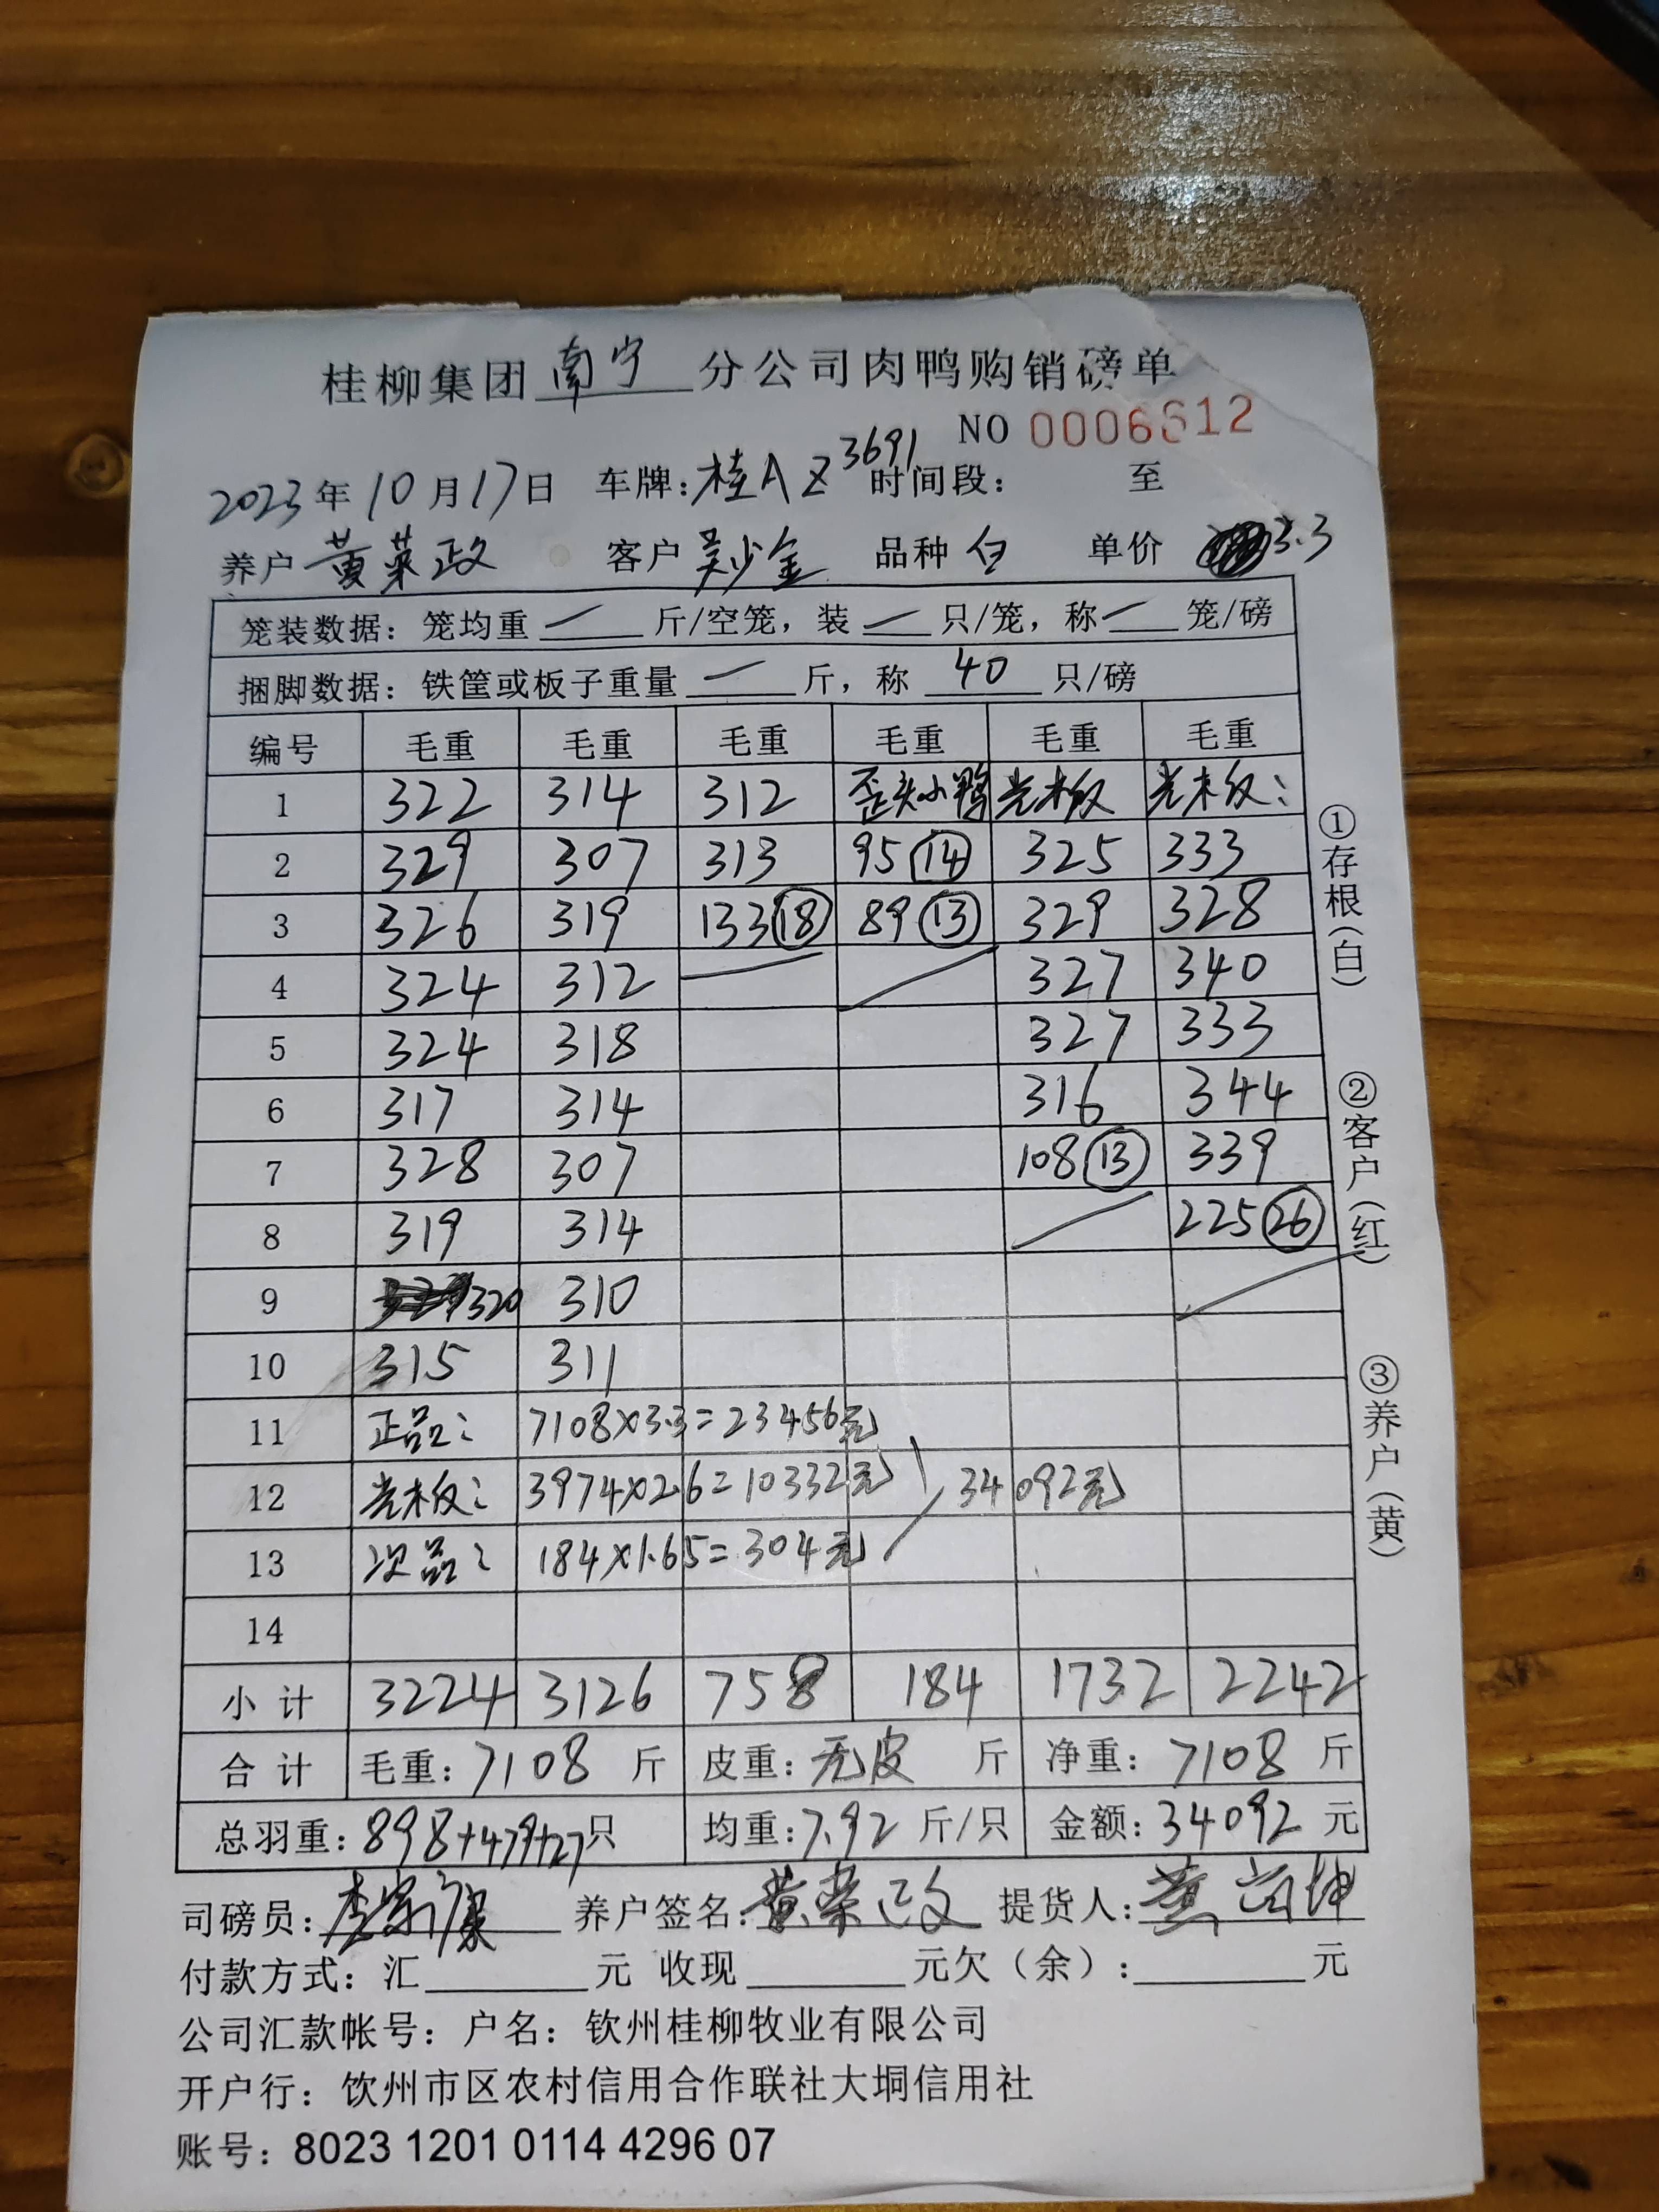 桂柳集团南宁分公司肉鸭购销磅单
NO 0006612
2023年10月17日 车牌:桂AZ3691 时间段: 至
养户 黄荣政 客户 吴少金 品种 白 单价 3.3
笼装数据:笼均重 斤/空笼,装 只/笼,称 笼/磅
捆脚数据:铁筐或板子重量 斤,称 40 只/磅
编号 毛重 毛重 毛重 毛重 毛重 毛重
1 322 314 312 歪头小鸭 光木板 光木板:
2 329 307 313 95⑭ 325 333
3 326 319 133⑱ 89⑬ 329 328
4 324 312 327 340
5 324 318 327 333
6 317 314 316 344
7 328 307 108⑬ 339
8 319 314 225㉖
9 320 310
10 315 311
11 正品: 7108×3.3=23456元
12 光木板: 3974×2.6=10332元 34092元
13 次品: 184×1.65=304元
14
小计 3224 3126 758 184 1732 2242
合计 毛重:7108 斤 皮重:无皮 斤 净重:7108 斤
总羽重:898+479+27只 均重:7.92 斤/只 金额:34092 元
司磅员: 养户签名:黄荣政 提货人:
付款方式:汇 元 收现 元欠(余): 元
公司汇款帐号:户名:钦州桂柳牧业有限公司
开户行:钦州市区农村信用合作联社大垌信用社
账号:8023 1201 0114 4296 07
①存根(白)
②客户(红)
③养户(黄)